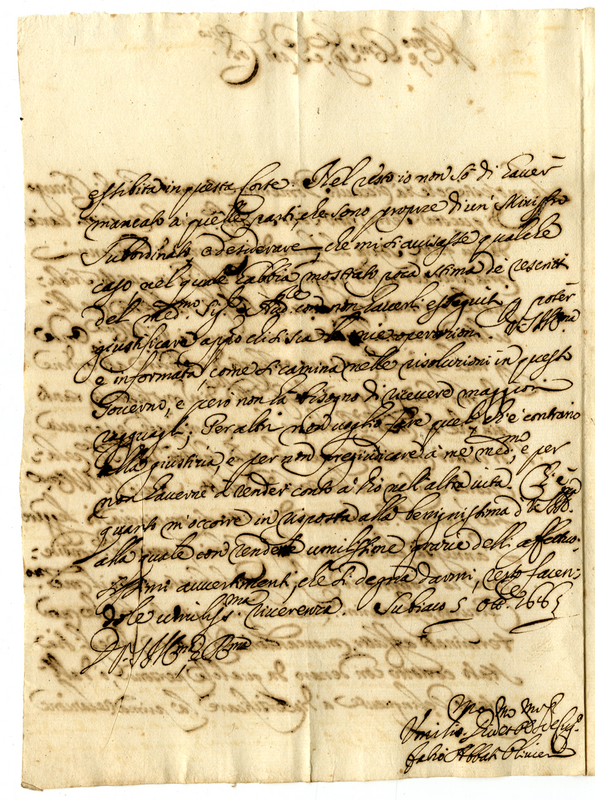 essibita in questa forte. Nel resto io non sò di haver
mancato à quelle parti, che sono proprie di un Ministro
subordinato, e desiderarei, che mi si avisasse qualche
caso nel quale habbia mostrato poca stima de rescritti
del med.mo Sig.r con non haverli esseguiti p poter
giustificare appo chi si sia le mie operationi. V.S. Ill.ma
è informata, come si camina nelle risolutioni in questo
Governo, e però non hà bisogno di ricevere maggiori
ragguagli; Per altro non voglio fare quel ch'è contrario
alla giustitia, e per non pregiudicare à me med.mo, e per
non haverne à render conto à Dio nell'altra vita. Ch'è
quanto m'occorre in risposta alla benignissima di V.S. Ill.ma
alla quale con renderle umilissime gratie delli affettuo-
sissimi avvertimenti, che si degna darmi, resto facen-
dole umiliss.ma riverenza. Subiaco 5 Ott.e 1665
Di V.S. Ill.ma e R.ma
Umiliss.
Fabio Abbati Olivieri